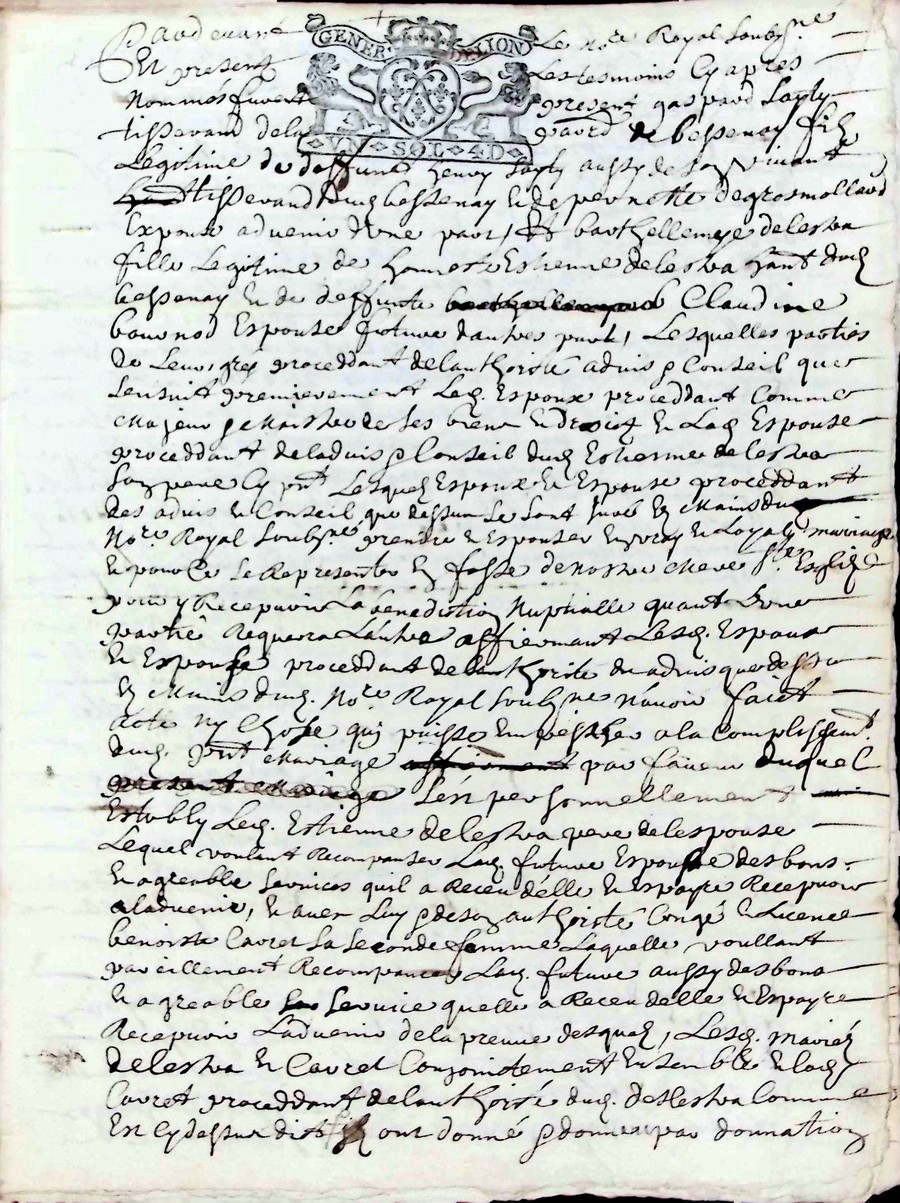 Pardevant Le No.re Royal soubs.ne
Et presents Les tesmoins Cy apres
GENER DE LION
VN SOL 4D
nommés furent present gaspard Layly
tisserand de la parr. de bessenay filz
Legitime de deffunt henry Layly aussy de son vivant
tisserand dud bessenay et de pernette degrosmollard
Expoux aduenir dune part, Et barthellemye delestra
fille Legitime de honneste Estienne delestra hant dud
bessenay et de deffunte Claudine
bournod Espouse future dautre part, Lesquelles parties
de Leurs gres proceddant de lauthorité aduis & Conseil que
sensuit premierement Led. Espoux proceddant Comme
Majeur & Maistre de ses biens et droictz et Lad Espouse
proceddant de laduis & Conseil dud Estienne delestra
son pere Cy pnt Lesquelz Espoux et Espouse proceddant
des aduis et Conseil que dessus se sont En Mains du
No.re Royal soubsne prendre et Espouser En vray et Loyal mariage
et pour Ce se Representer En fasse de nostre Mere s.te Esglize
pour y Recepuoir La benediction Nuptialle quant Lune
partie Requerra Lautre affirmant Lesd. Espoux
et Espouse proceddant de lauthorité et aduis que dessus
Es Mains dud. No.re Royal soubsne n'auoir faict
Acte ny Chose qui puisse Empescher a la Complissemt.
dud. pnt Mariage par faueur duquel
sest personnellement
Estably Led. Estienne delestra pere de lespouse
Lequel voulant Recompenser Lad future Espouse des bons
et agreable seruices quil a Receu delle et Espere Recepuoir
a laduenir, et auec Luy & de son authorité Congé et Licence
benoiste Carret sa seconde femme Laquelle voullant
pareillement Recompancer Lad. future aussy des bons
et agreable seruice quelle a Receu delle et Espere
Recepuoir Laduenir de la preuue desquelz, Lesd. mariés
delestra et Carret Conjointement Ensemble et Lad
Carret proceddant de lauthorité dud. delestra Comme
Est Cy dessus dit ont donné & donnent par donnation